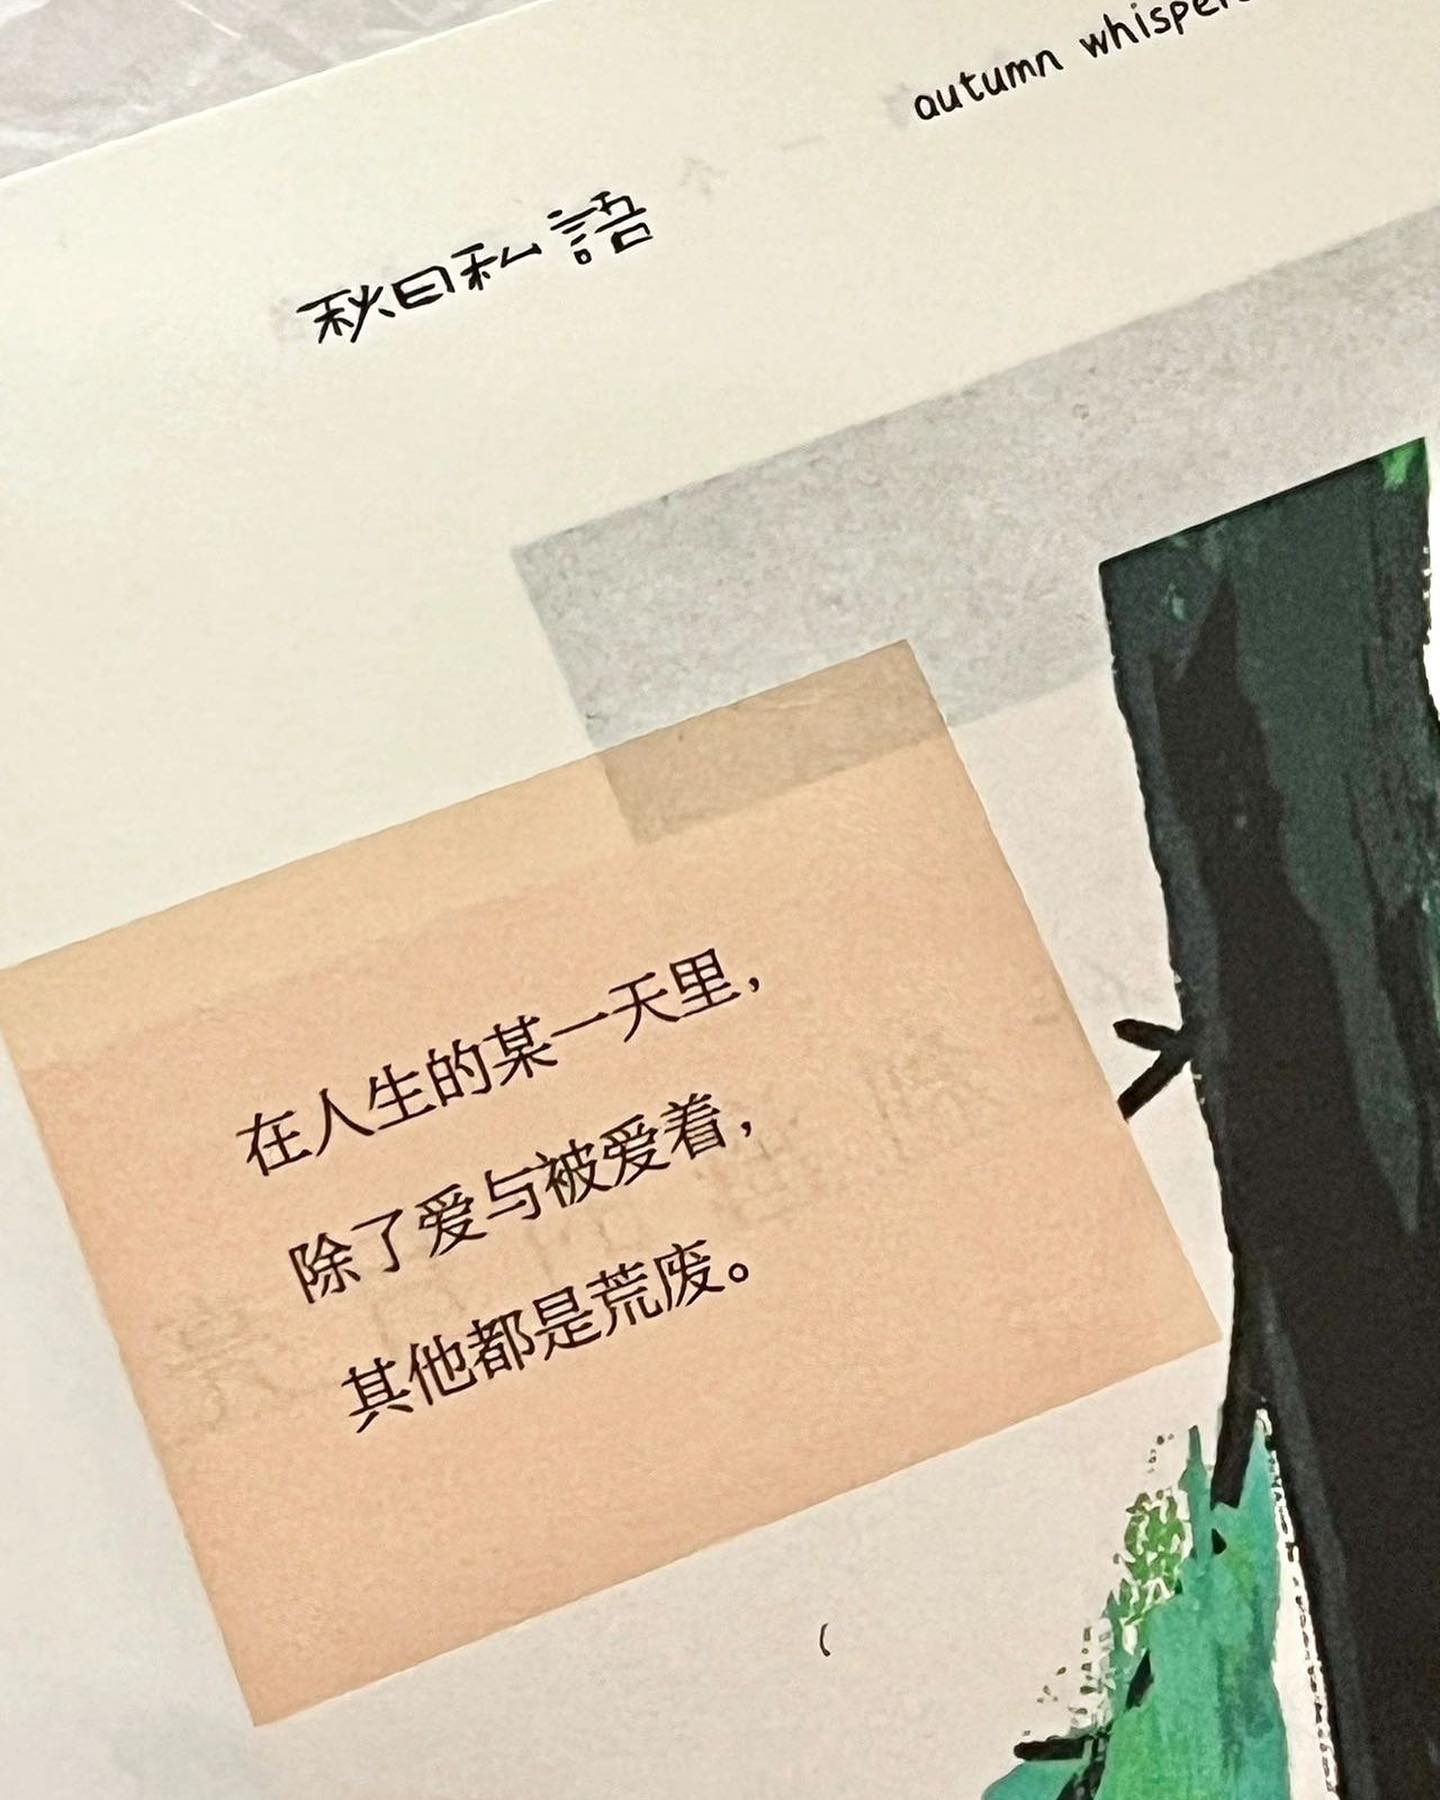 autumn whispers
秋日私語
在人生的某一天里，
除了爱与被爱着，
其他都是荒废。